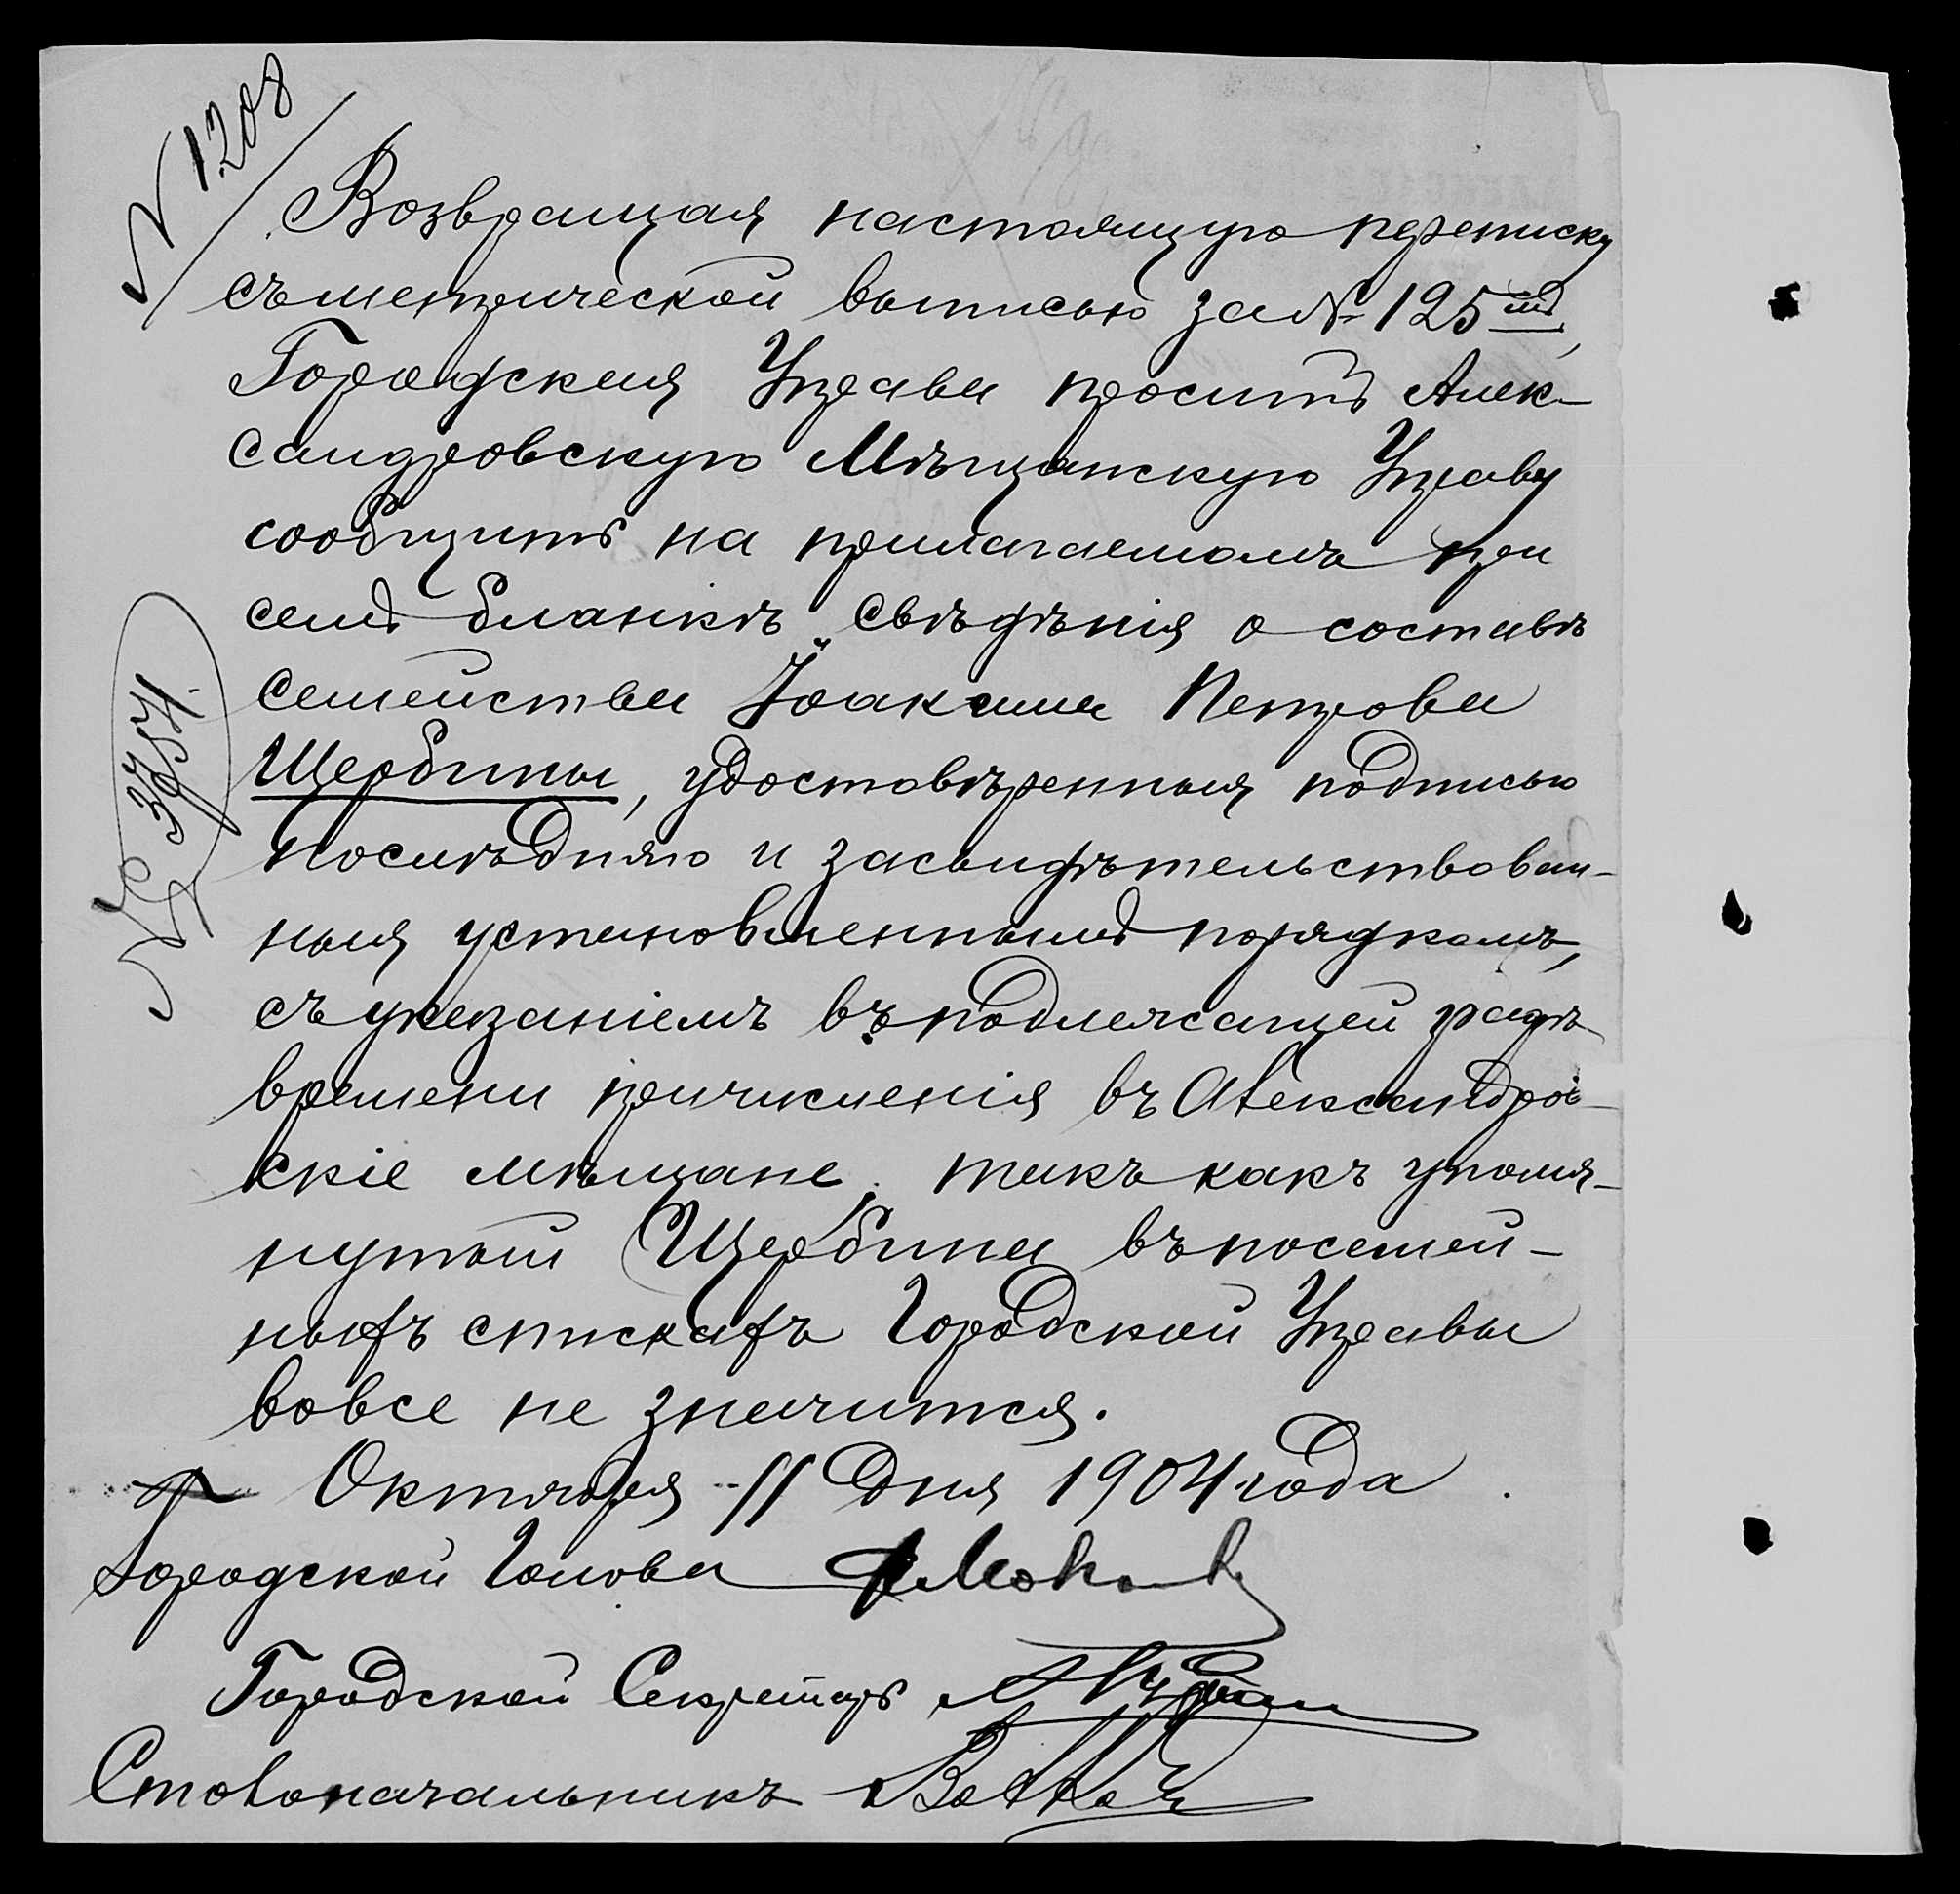 № 1208
Возвращая настоящую переписку
съ метрической выписью за № 125мъ,
Городская Управа проситъ Алек-
сандровскую Мѣщанскую Управу
сообщить на прилагаемомъ при
семъ бланкѣ „свѣдѣнія о составѣ
семейства Іоакима Петрова
Щербины, удостовѣренныя подписью
послѣдняго и засвидѣтельствован-
ныя установленнымъ порядкомъ,
съ указаніемъ въ подлежащей графѣ
времени причисленія въ Александров-
скіе мѣщане, такъ какъ упомя-
нутый Щербина въ посемей-
ныхъ спискахъ Городской Управы
вовсе не значится.
Октября 11 дня 1904 года
Городской Голова
Городской Секретарь
Столоначальникъ Волковъ
№ 3754.